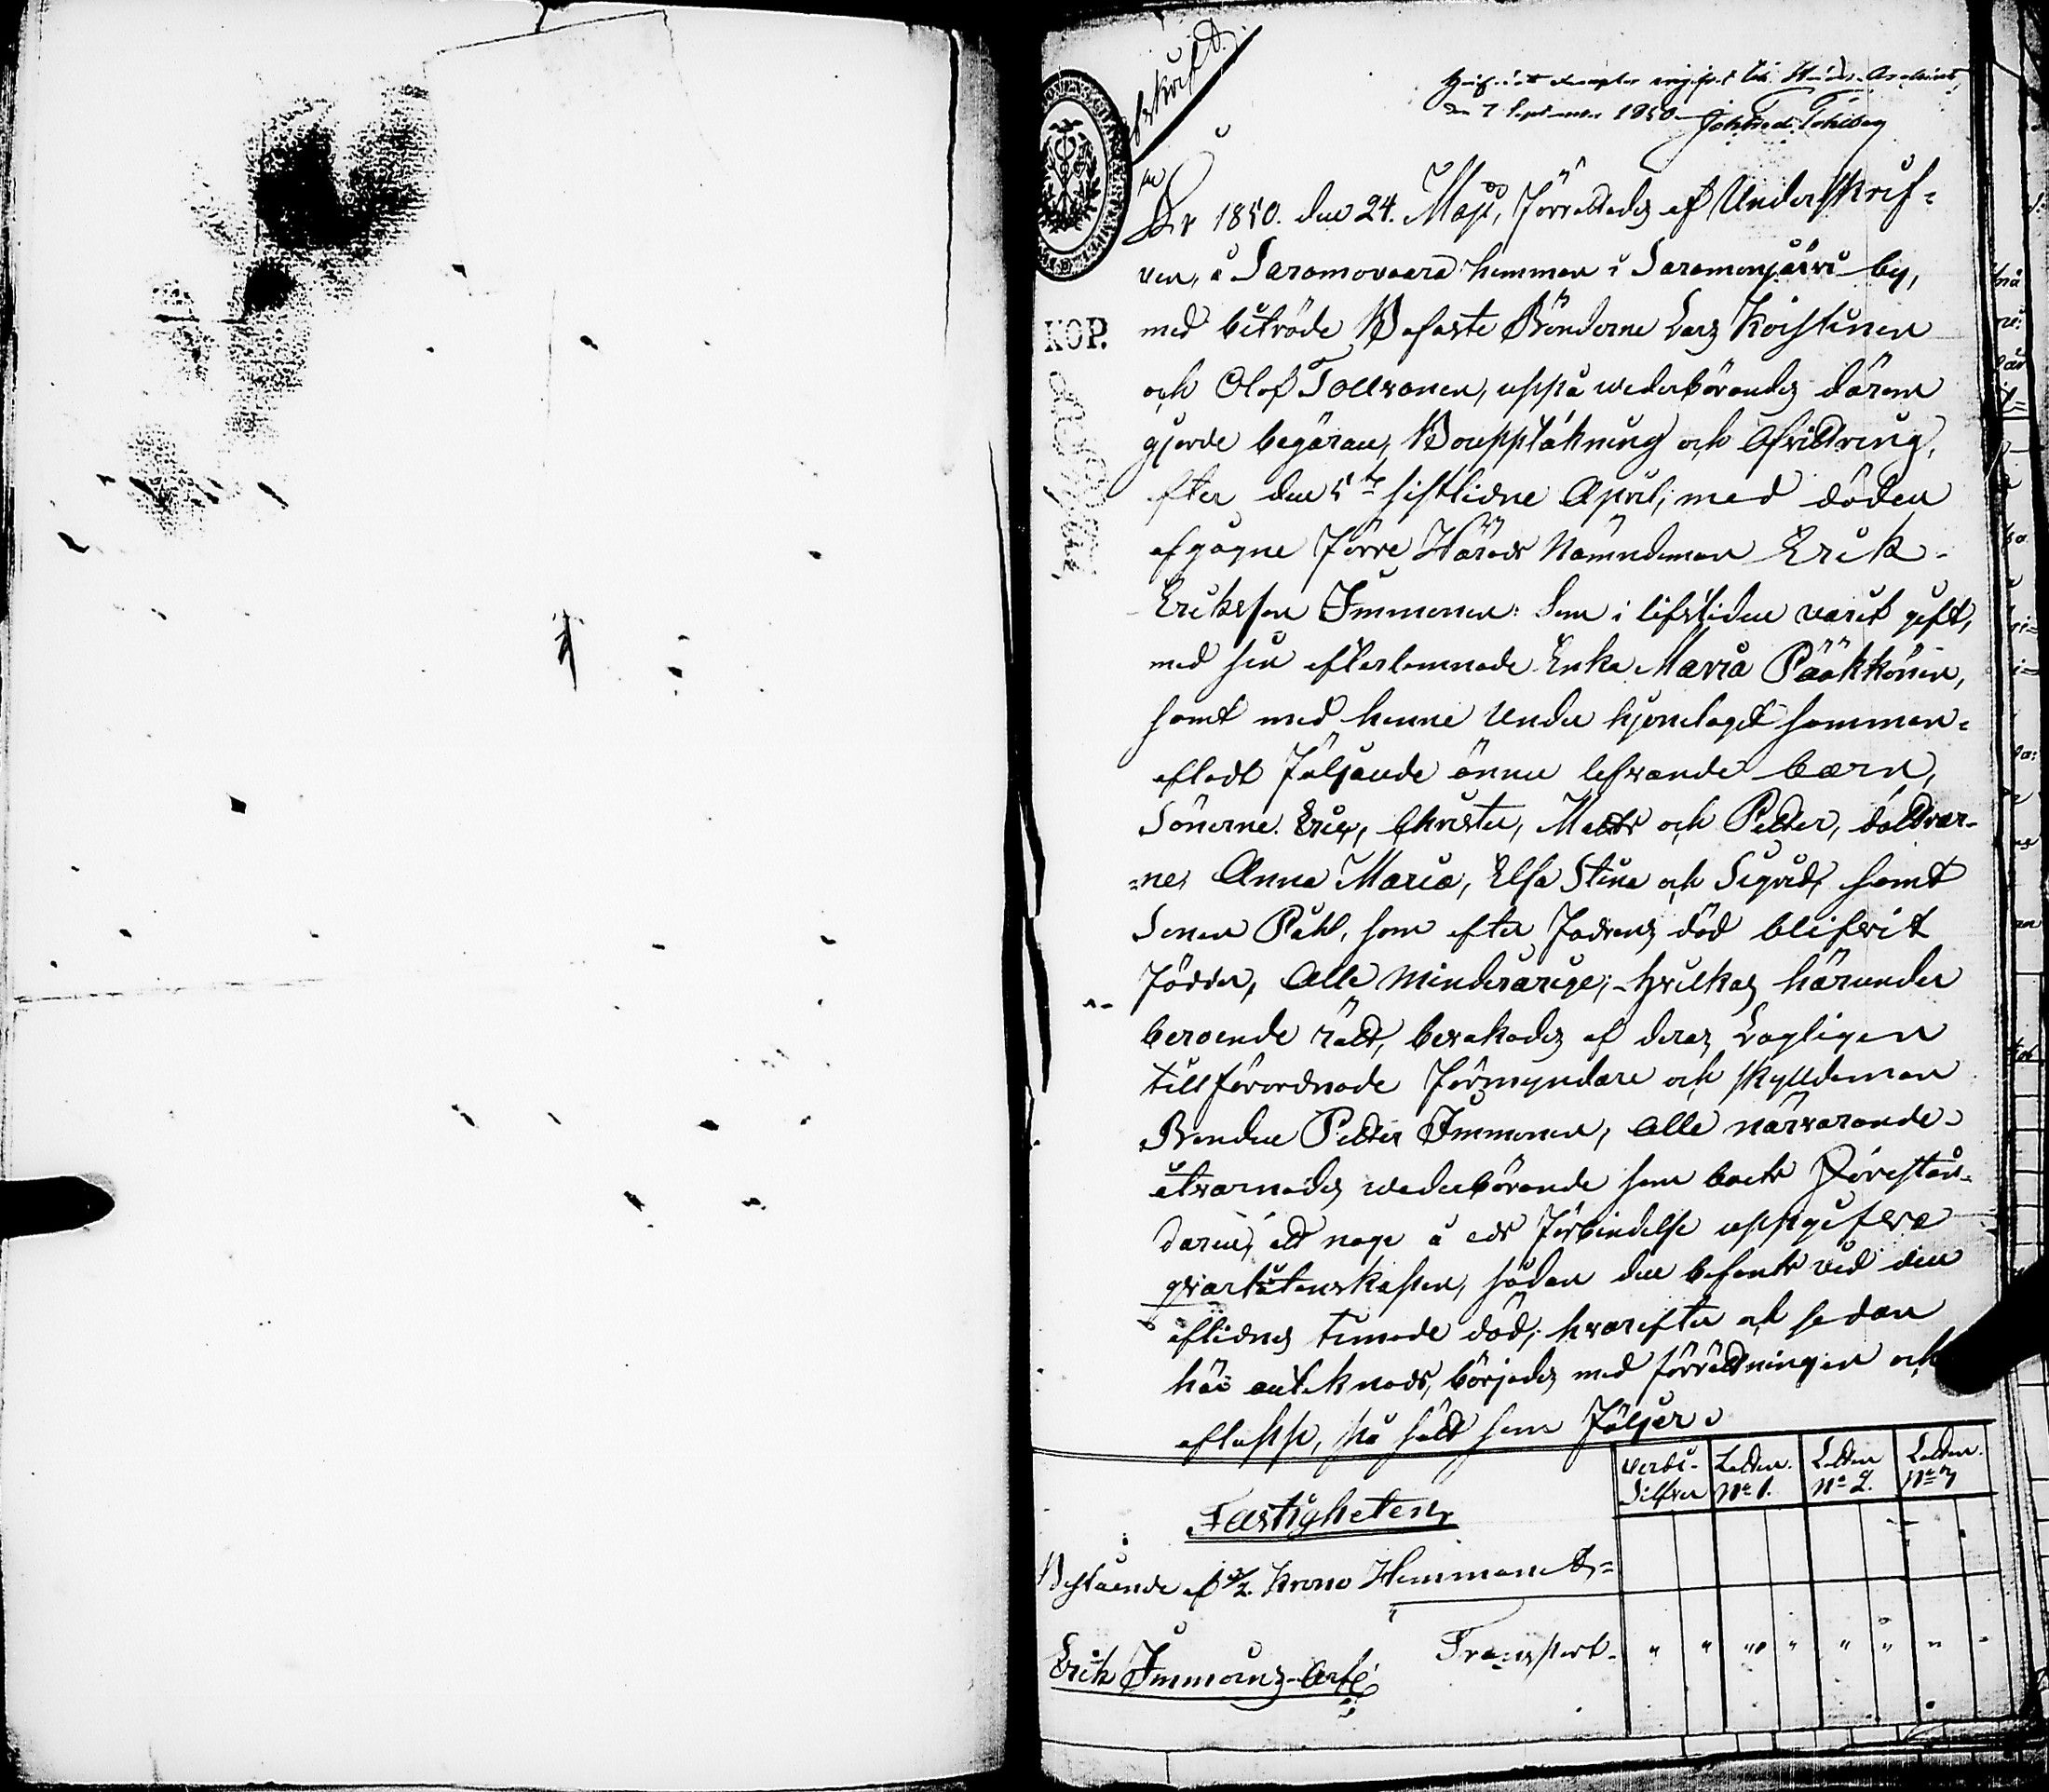 Afskrift.
den 7 September 1850
KOP.
År 1850. den 24. Maji, förrättades af Underskrif=
ven, å Saramovaara hemman i Saramonjärvi by,
med biträde Bofaste Bönderne Lars Koistinen
och Olof Tollvanen, uppå wederbörandes därom
gjorde begäran, Bouppteckning och Afvittring,
efter den 5te sistlidne April, med döden
afgågne förre Härads Nämndeman Erik
Eriksson Immonen: Som i lifstiden varit gift,
med sin efterlemnade Enka Maria Pääkkönen,
samt med henne under hjonelaget samman=
aflat följande ännu lefvande barn,
Sönerne Eric, Christer, Matts och Petter, döttrar=
=ne, Anna Maria, Elsa Stina och Sigrid, samt
Sonen Påhl, som efter fadrens död blifvit
födder, Alle Minderårige; hvilkas härunder
beroende rätt, bevakades af deras Lagligen
tillförordnade förmyndare och skyldeman
Bonden Petter Immonen, Alle närvarande
åtvarnades wederbörande som boets Förestån=
daren, att noga å eds förbindelse uppgifva
qvarlåtenskapen, sådan den befants vid den
aflidnes timade död; hvarefter och sedan
här antecknads, börjades med förrättningen och
aflopp, på sätt som följer
Verde Silfver Lotten No 1. Lotten No 2. Lotten No 3
Fastigheten,
Bestående af 1/2 Krono Hemmanet=
Transport
Erik Immoinz Arf